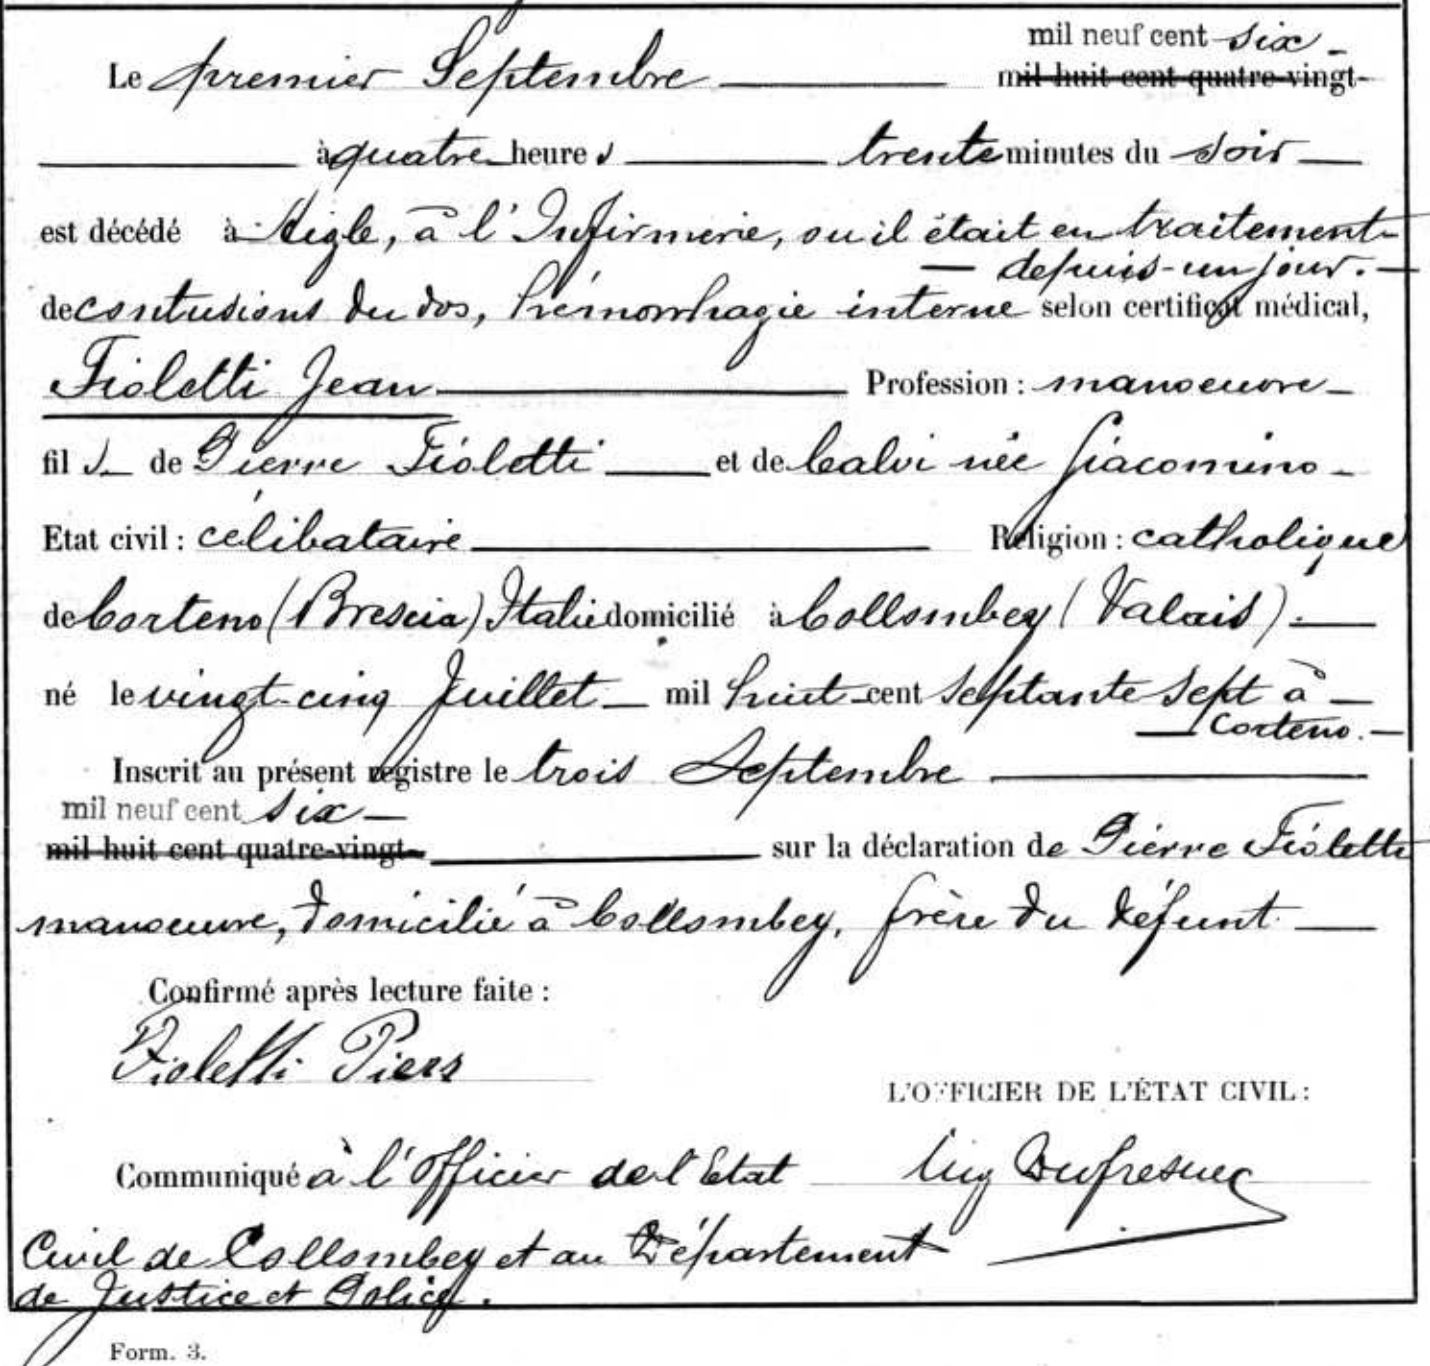 mil neuf cent six
Le premier Septembre mil huit cent quatre-vingt-
à quatre heures trente minutes du soir
est décédé à Aigle, à l'Infirmerie, ou il était en traitement
depuis un jour.
de contusions du dos, hémorrhagie interne selon certificat médical,
Fioletti Jean Profession : manoeuvre
fils de Pierre Fioletti et de Calvi née Giacomino
Etat civil : célibataire Religion : catholique
de Corteno (Brescia) Italie domicilié à Collombey (Valais).
né le vingt-cinq Juillet mil huit cent septante sept à
Corteno.
Inscrit au présent registre le trois Septembre
mil neuf cent six
mil huit cent quatre-vingt- sur la déclaration de Pierre Fioletti
manoeuvre, domicilié à Collombey, frère du défunt
Confirmé après lecture faite :
Fioletti Piero
L'OFFICIER DE L'ÉTAT CIVIL :
Communiqué à l'Officier de l'Etat Dufresne
Civil de Collombey et au Département
de Justice et Police.
Form. 3.